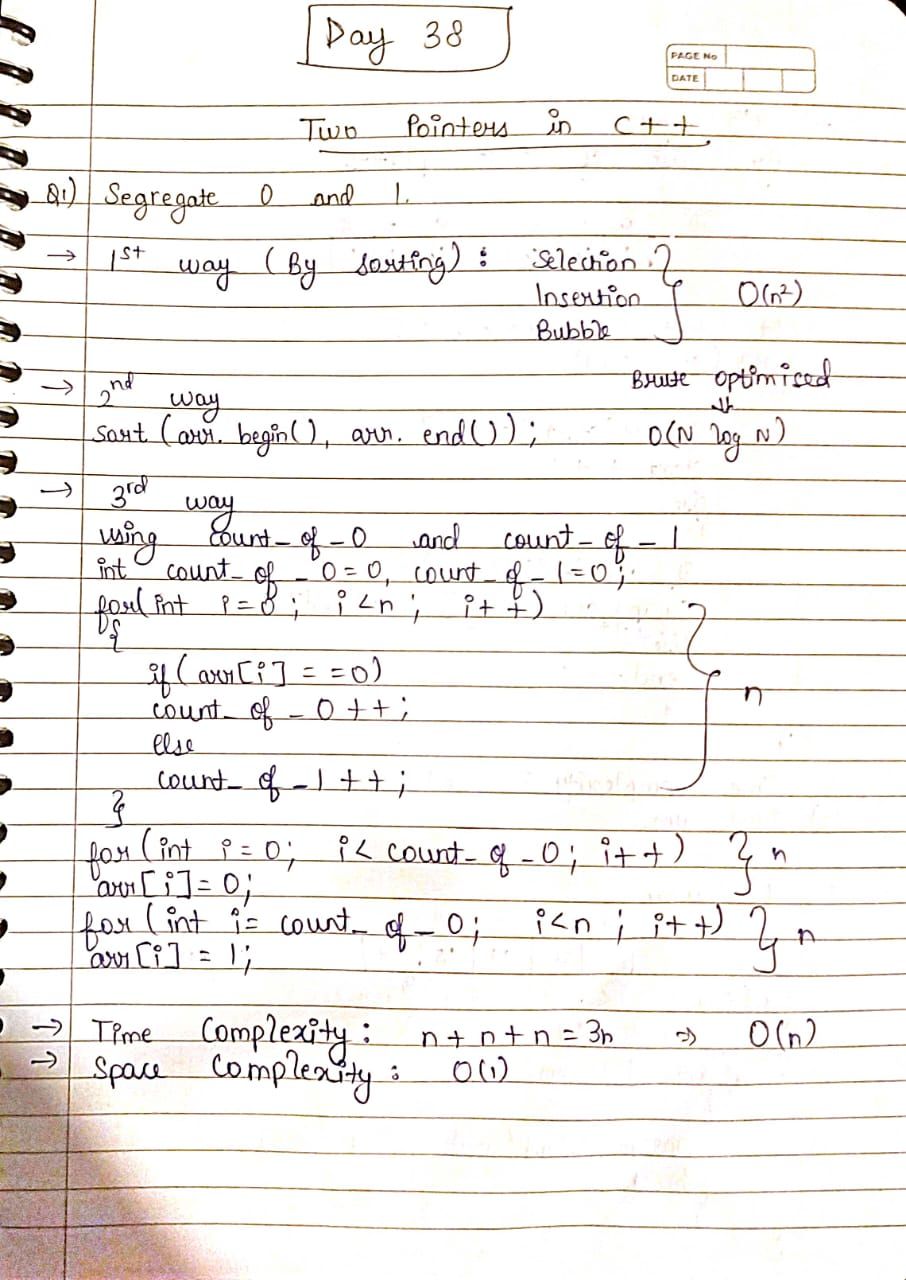 Day 38
PAGE No
DATE
Two Pointers in C++
Q1) Segregate 0 and 1.
→ 1st way (By sorting) : Selection
Insertion } O(n²)
Bubble
→ 2nd way Brute optimised
⇓
sort (arr. begin(), arr. end()); O(N log N)
→ 3rd way
using count_of_0 and count_of_1
int count_of_0=0, count_of_1=0;
for(int i=0; i<n; i++)
{
if(arr[i]==0)
count_of_0++;
else } n
count_of_1++;
}
for(int i=0; i<count_of_0; i++) } n
arr[i]=0;
for(int i=count_of_0; i<n; i++) } n
arr[i]=1;
→ Time Complexity: n+n+n=3n ⇒ O(n)
→ Space Complexity: O(1)